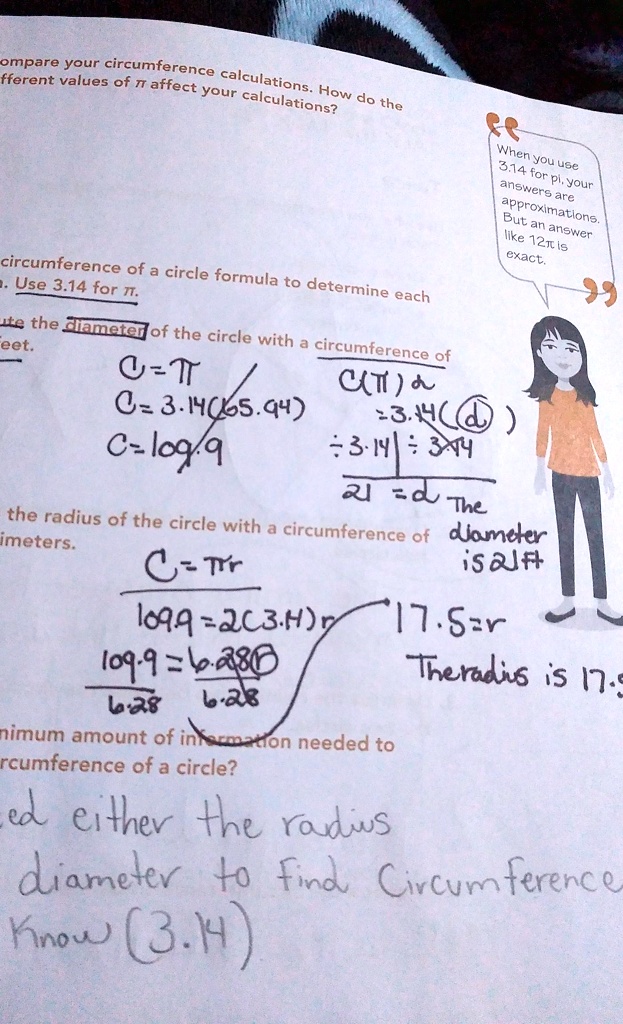 ompare your circumference calculations. How do the
fferent values of π affect your calculations?
When you use
3.14 for pi, your
answers are
approximations.
But an answer
like 12π is
exact.
circumference of a circle formula to determine each
. Use 3.14 for π.
ute the diameter of the circle with a circumference of
eet.
C=π
C= 3.14(65.94)
C=109.9
C(π)d
=3.14(d)
÷3.14 ÷ 3.14
21 =d The
diameter
is 21ft
the radius of the circle with a circumference of
imeters.
C=πr
109.9=2(3.14)r
109.9=6.28
6.28 6.28
17.5=r
The radius is 17.5
nimum amount of information needed to
rcumference of a circle?
ed either the radius
diameter to find Circumference
Know (3.14)